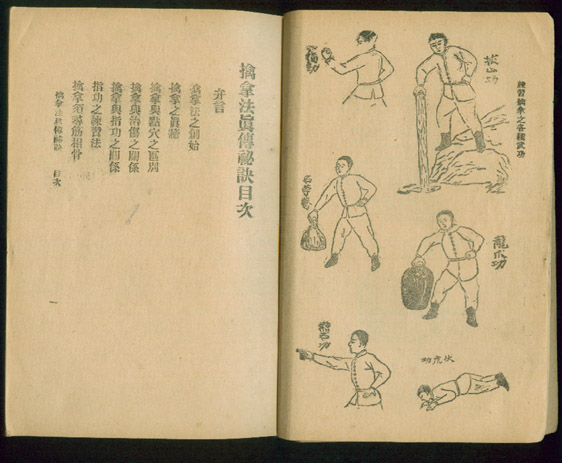 練習擒拿之各種武功
拔山功
龍爪功
伏虎功
擒拿法眞傳祕訣目次
弁言
擒拿法之創始
擒拿之眞諦
擒拿與點穴之區別
擒拿與治傷之關係
擒拿與指功之關係
指功之練習法
擒拿須尋筋相骨
擒拿法眞傳祕訣 目次
一